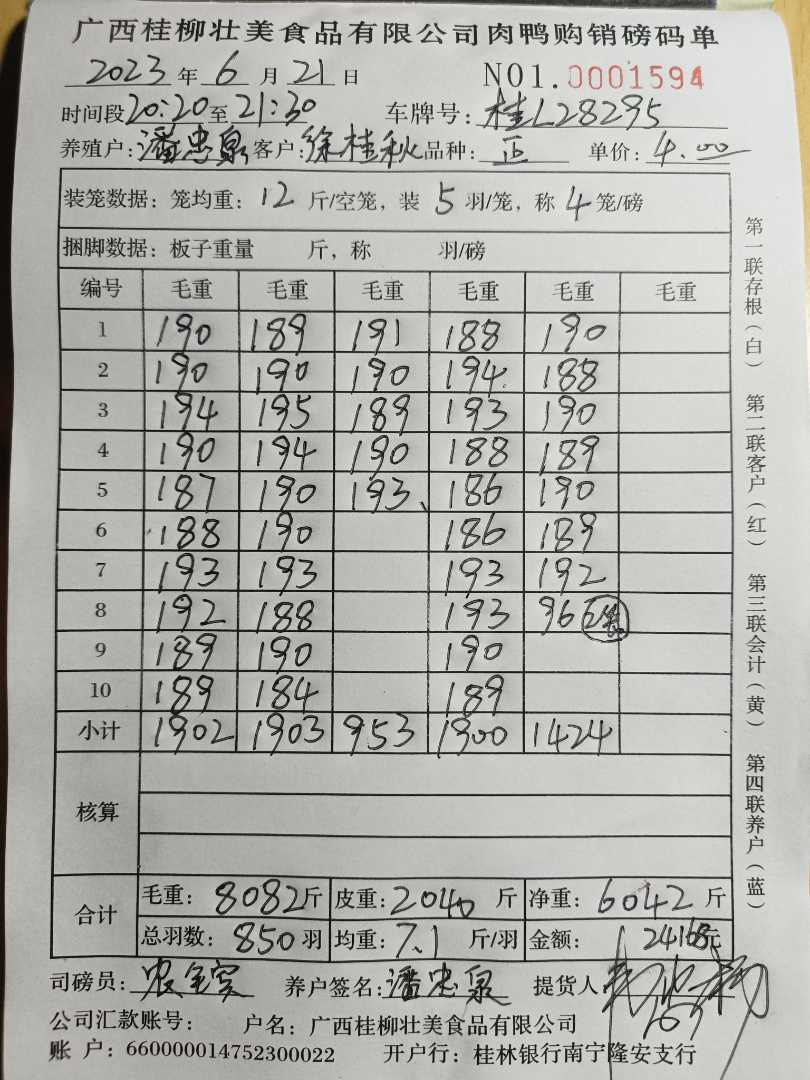 广西桂柳壮美食品有限公司肉鸭购销磅码单
2023年6月21日 NO1.0001594
时间段20:20至21:30 车牌号:桂L28295
养殖户:潘忠泉 客户:徐桂秋 品种:正 单价:4.00
装笼数据:笼均重:12斤/空笼,装5羽/笼,称4笼/磅
捆脚数据:板子重量 斤,称 羽/磅
编号 毛重 毛重 毛重 毛重 毛重 毛重
1 190 189 191 188 190
2 190 190 190 194 188
3 194 195 189 193 190
4 190 194 190 188 189
5 187 190 193 186 190
6 188 190 186 189
7 193 193 193 192
8 192 188 193 96
9 189 190 190
10 189 184 189
小计 1902 1903 953 1900 1424
核算
合计 毛重:8082斤 皮重:2040斤 净重:6042斤
总羽数:850羽 均重:7.1斤/羽 金额:24168元
司磅员: 养户签名:潘忠泉 提货人
公司汇款账号: 户名:广西桂柳壮美食品有限公司
账户:660000014752300022 开户行:桂林银行南宁隆安支行
第一联存根(白) 第二联客户(红) 第三联会计(黄) 第四联养户(蓝)